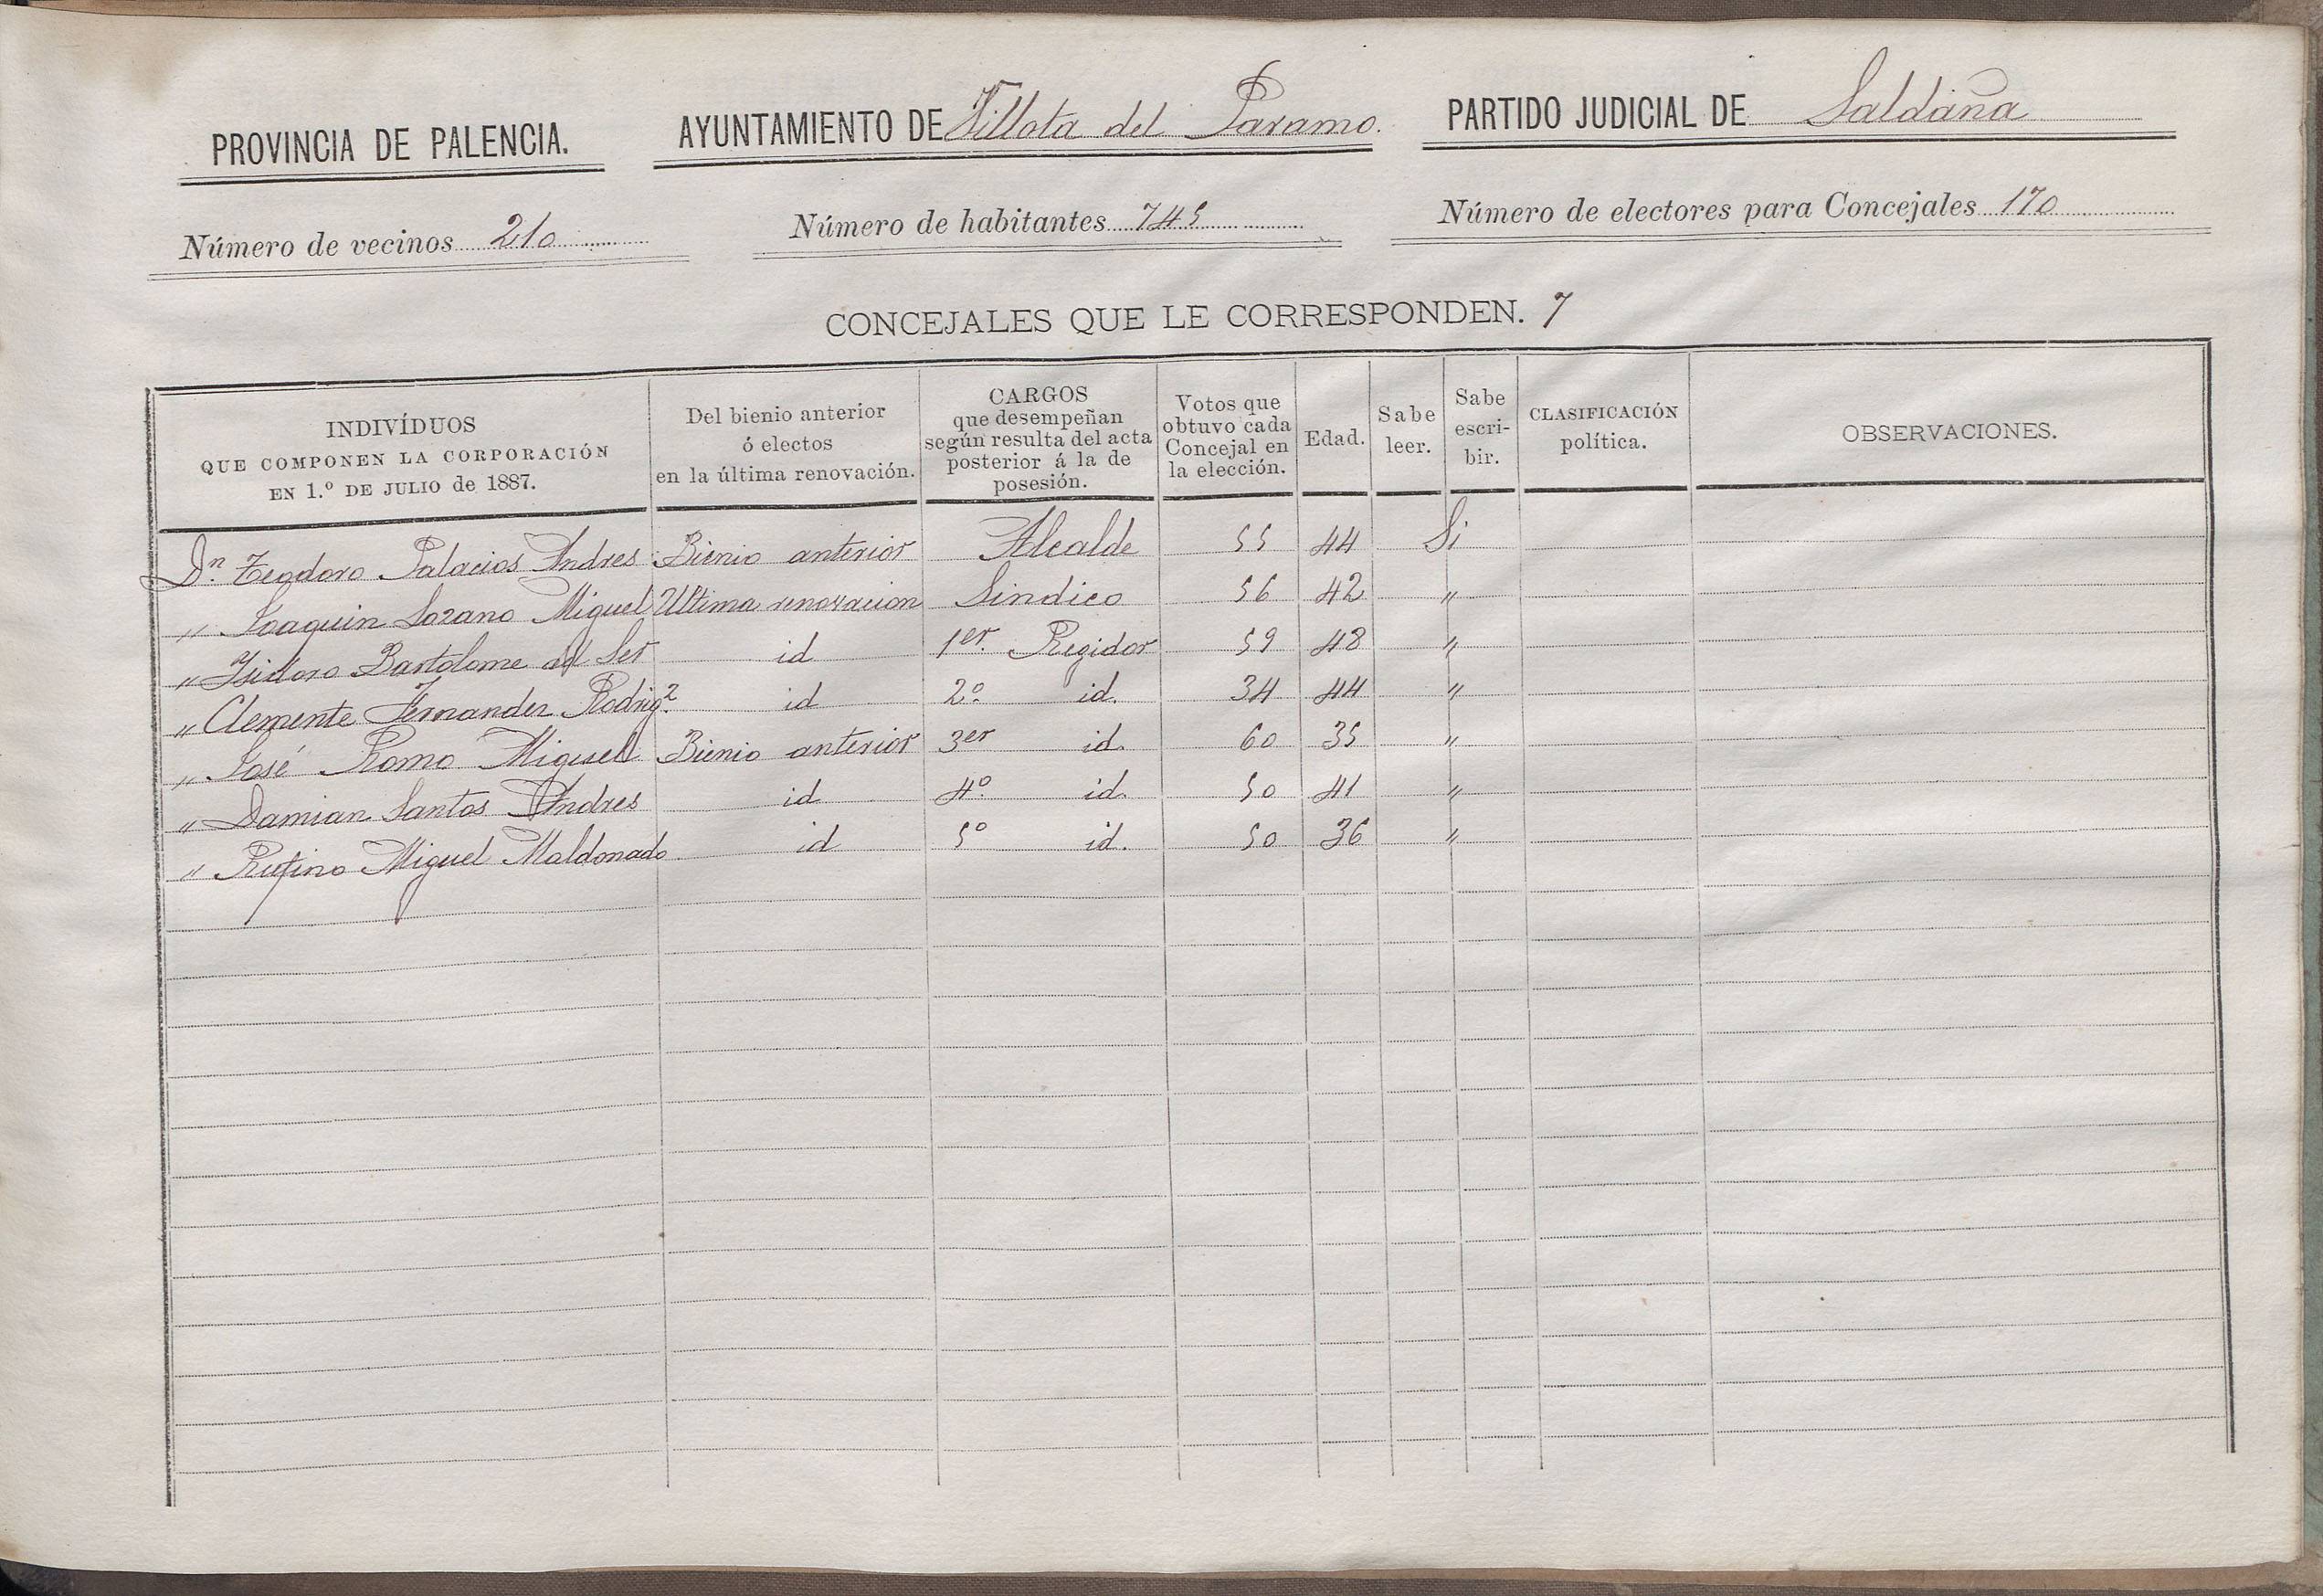 PROVINCIA DE PALENCIA. AYUNTAMIENTO DE Villota del Paramo. PARTIDO JUDICIAL DE Saldaña
Número de vecinos 210 Número de habitantes 745 Número de electores para Concejales 170
CONCEJALES QUE LE CORRESPONDEN. 7
INDIVÍDUOS
QUE COMPONEN LA CORPORACIÓN
EN 1.º DE JULIO de 1887.
Del bienio anterior
ó electos
en la última renovación.
CARGOS
que desempeñan
según resulta del acta
posterior á la de
posesión.
Votos que
obtuvo cada
Concejal en
la elección.
Edad.
Sabe
leer.
Sabe
escri-
bir.
CLASIFICACIÓN
política.
OBSERVACIONES.
Dn. Teodoro Palacios Andres Bienio anterior Alcalde 55 44 Si
" Joaquin Lozano Miguel Ultima renovacion Sindico 56 42 "
" Isidoro Bartolome del Ser id 1er. Regidor 59 48 "
" Clemente Fernandez Rodrigz. id 2º id. 34 44 "
" José Romo Miguel Bienio anterior 3er id. 60 35 "
" Damian Santos Andres id 4º id. 50 41 "
" Rufino Miguel Maldonado id 5º id. 50 36 "